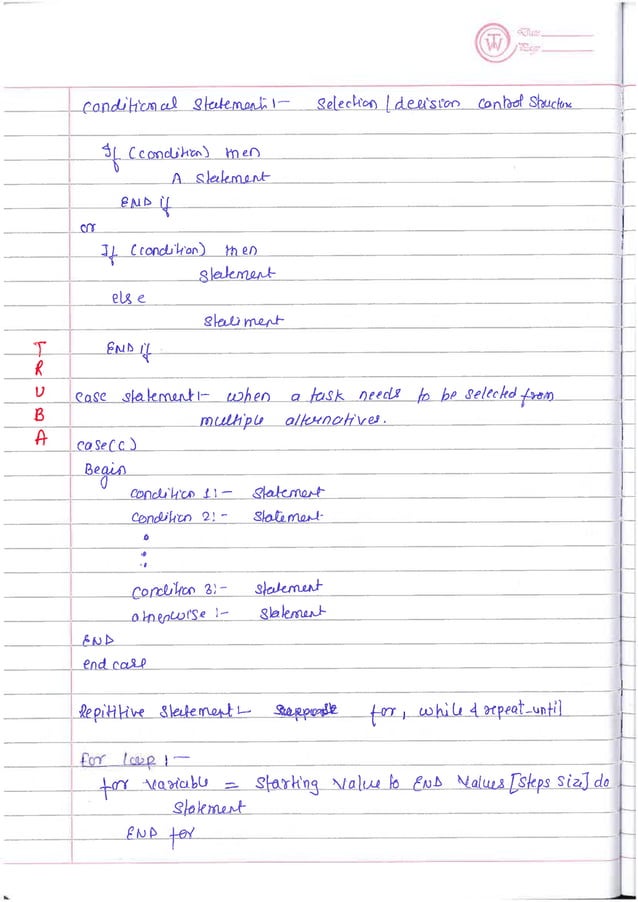 Date
Page
Conditional Statement :- Selection / decision Control Structure
If (condition) then
A Statement
END if
or
If (condition) then
Statement
else
Statiment
END if
T
R
U
B
A
case statement :- when a task needs to be selected from
multiple alternatives.
case(c)
Begin
condition 1 :- Statement
condition 2 :- Statement
condition 3 :- Statement
otherwise :- Statement
END
end case
Repititive Statement :- for, while & repeat-until
for loop :-
for variable = Starting Value to END Values [Steps Siz] do
Statement
END for